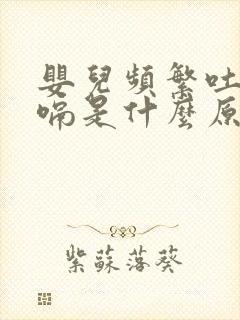 嬰兒頻繁吐
嗝是什麼原
紫蘇落葵